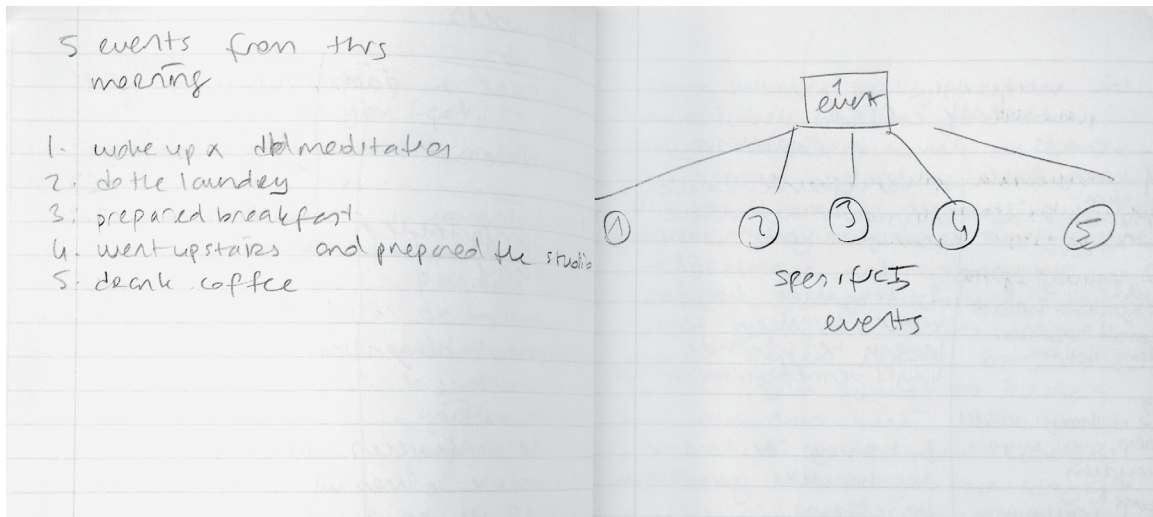 5 events from this
morning
1. woke up & did meditation
2. do the laundry
3. prepared breakfast
4. went upstairs and prepared the studio
5. drank coffee
1
event
1 2 3 4 5
specific 5
events